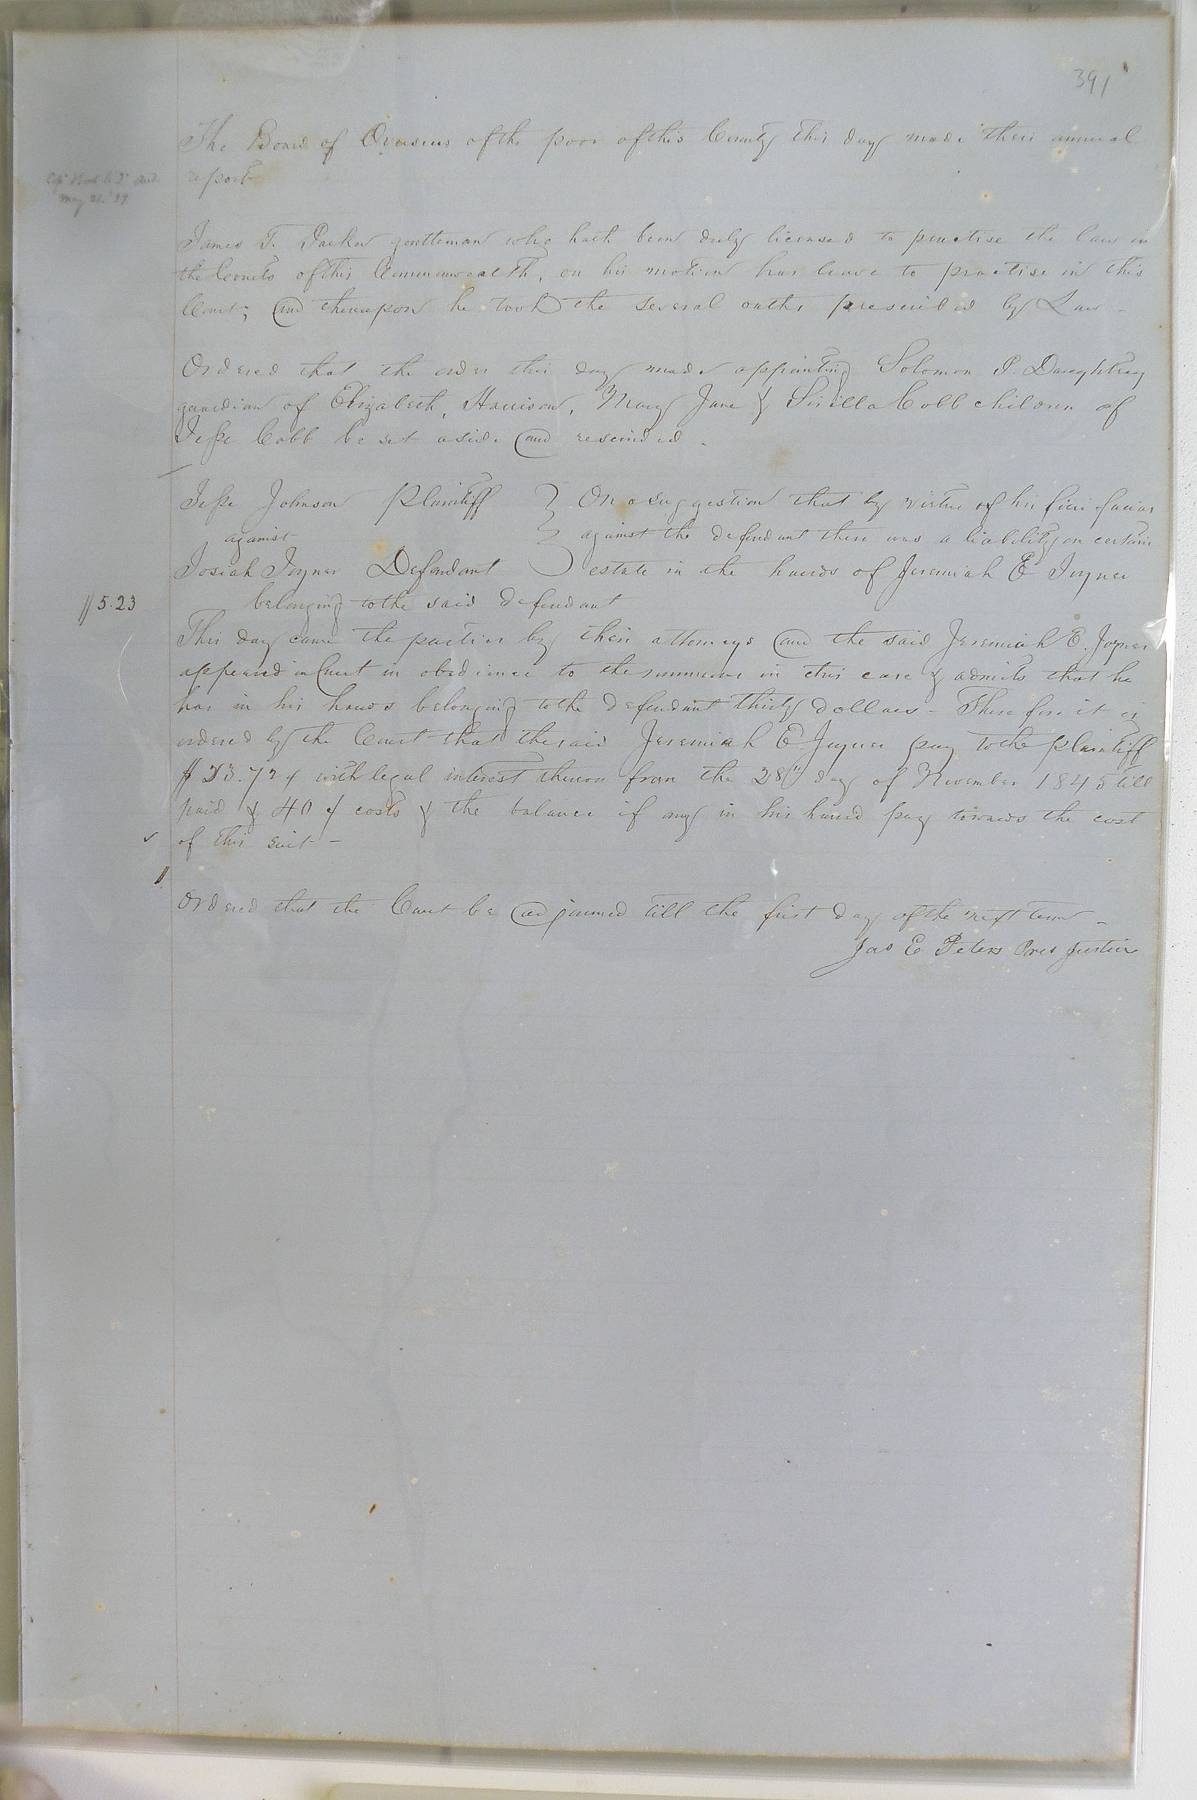 391
The Board of Overseers of the poor of this County this day made their annual
report
May 21. '
James T. Parker gentleman who hath been duly licensed to practise the law in
the Courts of this Commonwealth, on his motion has leave to practise in this
Court; and thereupon he took the several oaths prescribed by Law -
Ordered that the order this day made appointing Solomon P. Daughtrey
guardian of Elizabeth, Harrison, Mary Jane & Sirilla Cobb children of
Jesse Cobb be set aside and rescinded -
Jesse Johnson Plaintiff } On a suggestion that by virtue of his fieri facias
against } against the defendant there was a liability on certain
Josiah Joyner Defendant } estate in the hands of Jeremiah E Joyner
$5.23 belonging to the said defendant
This day came the parties by their attorneys and the said Jeremiah E. Joyner
appeared in Court in obedience to the summons in this case & admits that he
has in his hands belonging to the defendant thirty dollars - Therefore it is
ordered by the Court that the said Jeremiah E Joyner pay to the plaintiff
with legal interest thereon from the 28th day of November 1845 till
paid & 40 ¢ costs & the balance if any in his hands pay towards the cost
of this suit -
Ordered that the Court be adjourned till the first day of the next term -
Jas E Peters Pres Justice